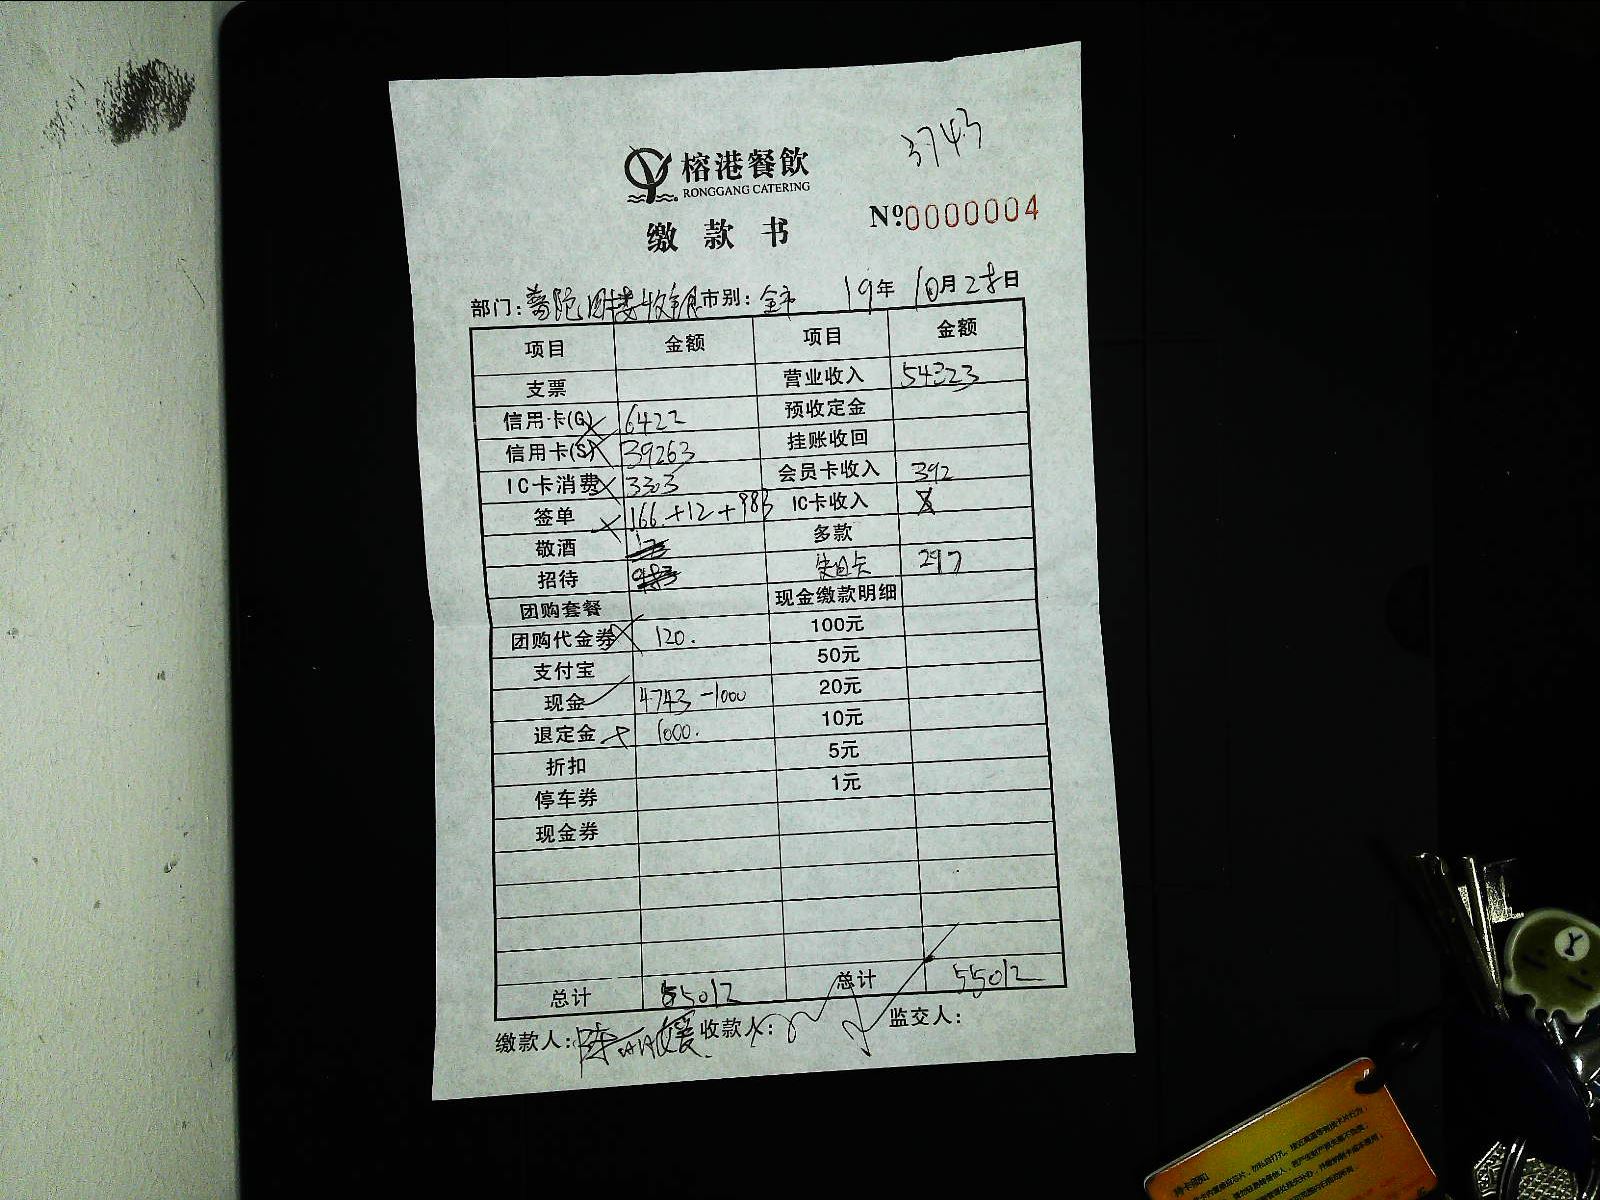 3743
榕港餐飲
RONGGANG CATERING
缴款书
Nº:0000004
部门: 普陀 收银 市别: 全市 19年 10月28日
项目 金额 项目 金额
支票 营业收入 54323
信用卡(G) 6422 预收定金
信用卡(S) 39263 挂账收回
IC卡消费 3303 会员卡收入 392
签单 166.+12+983 IC卡收入
敬酒 多款
招待 297
团购套餐 现金缴款明细
团购代金券 120. 100元
支付宝 50元
现金 4743-1000 20元
退定金 1000. 10元
折扣 5元
停车券 1元
现金券
总计 55012 总计 55012
缴款人: 陈 媛 收款人: 监交人: